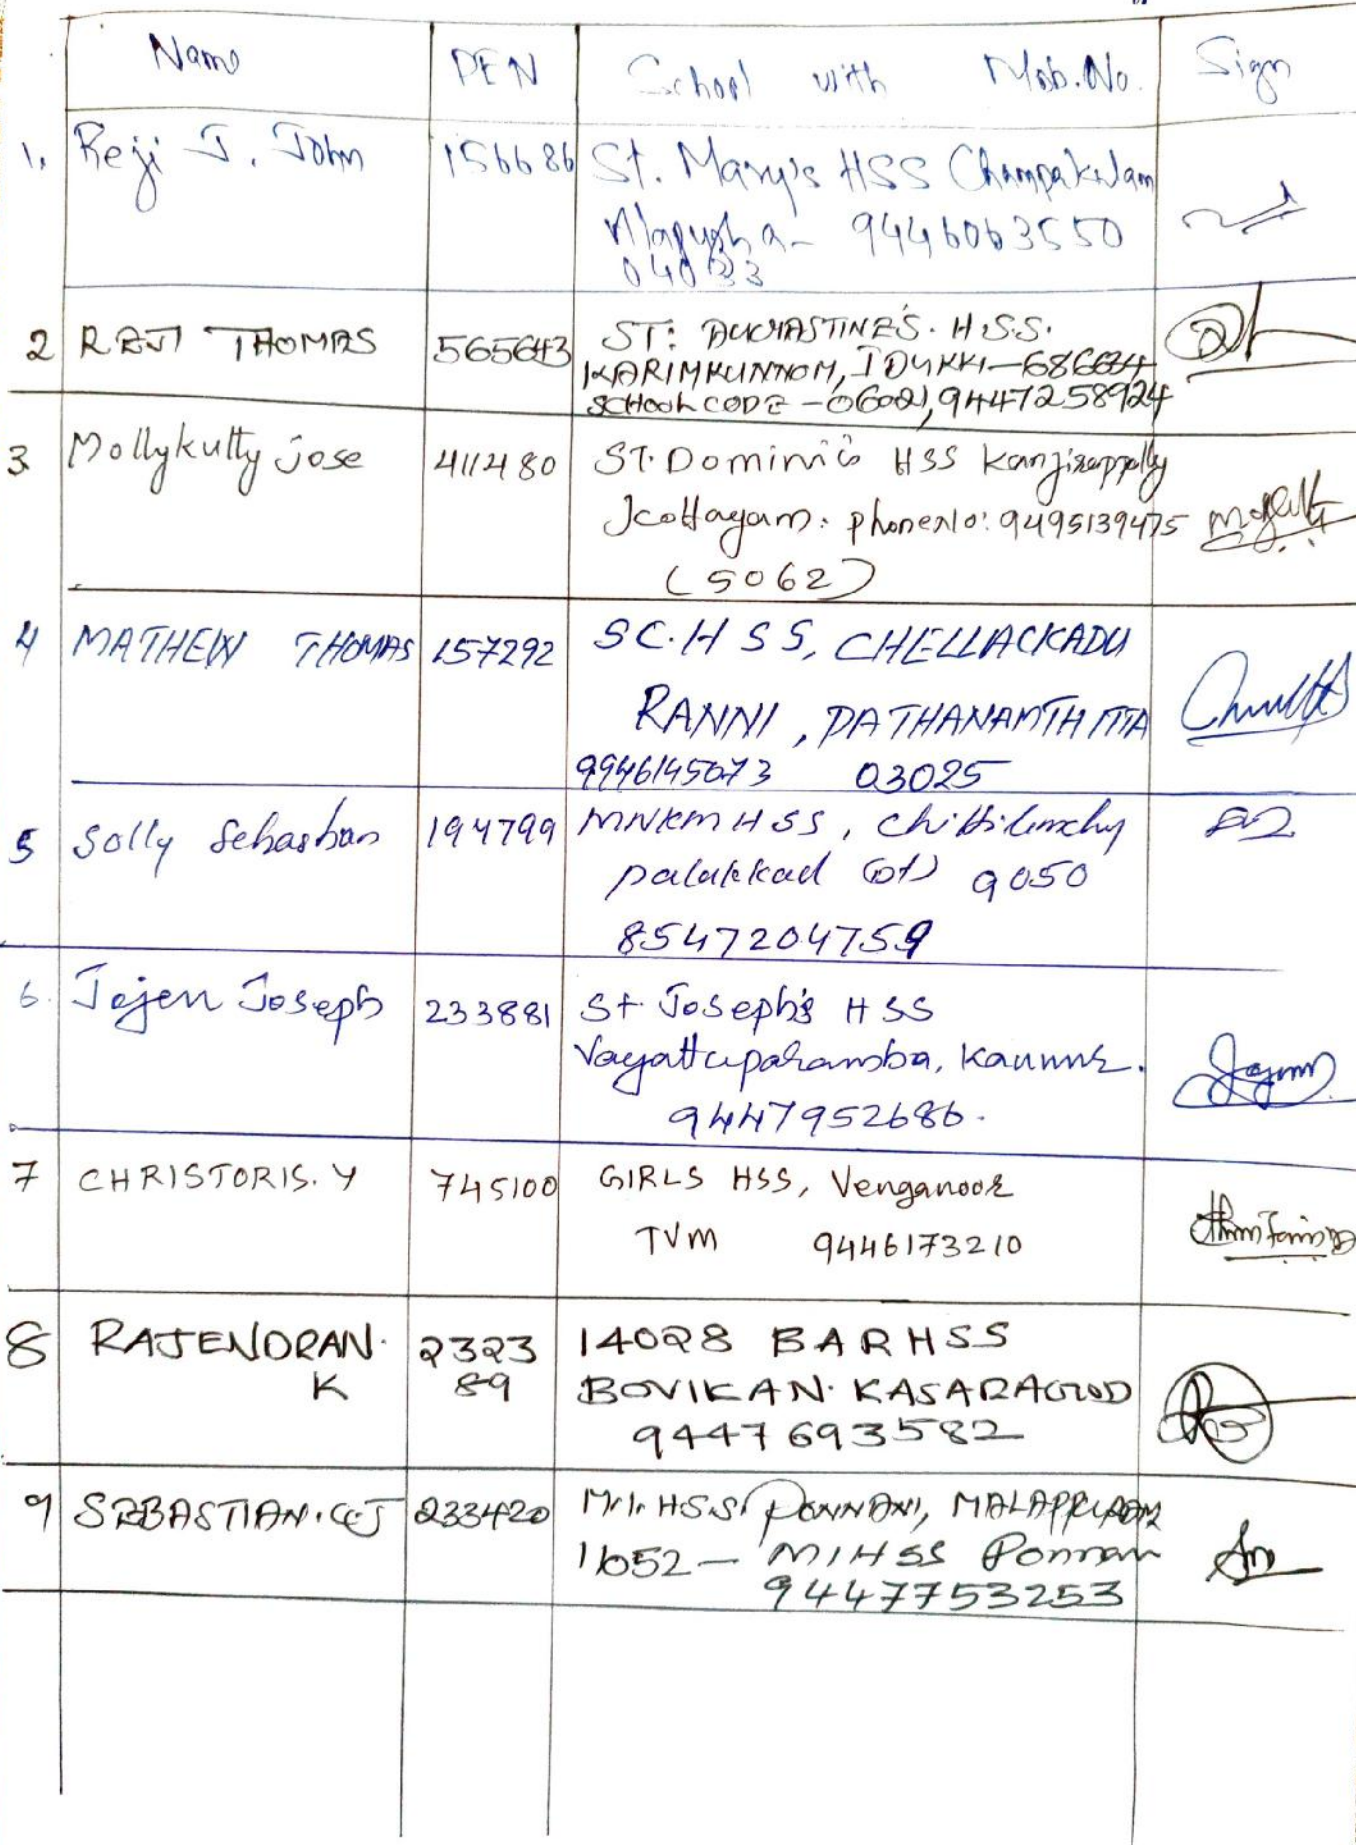 Name PEN School with Mob.No. Sign
1. Reji J. John 156686 St. Mary's HSS Champakulam
Alapuzha - 9446063550
2 REJI THOMAS 565643 ST: H.S.S.
KARIMKUNNOM, IDUKKI-
SCHOOL CODE - 9447258924
3 Mollykutty jose 411480 ST. Dominic's HSS Kanjirappally
Kottayam. phone No: 9495139475
(5062)
4 MATHEW THOMAS 157292 SC.H S S, CHELLACKADU
RANNI, PATHANAMTHITTA
9946145073 03025
5 Solly Sebastian 194799 MNKM HSS,
palakkad (Dt) 9050
8547204759
6. Jojen Joseph 233881 St. Joseph's HSS
Vayattuparamba, Kannur.
9447952686.
7 CHRISTORIS. Y 745100 GIRLS HSS, Venganoor
TVM 9446173210
8 RAJENDRAN. 2323 14028 BARHSS
K 89 BOVIKAN. KASARAGOD
9447693582
9 SEBASTIAN. 233420 M.I.HSS. PONNANI, MALAPPURAM
MIHSS
9447753253